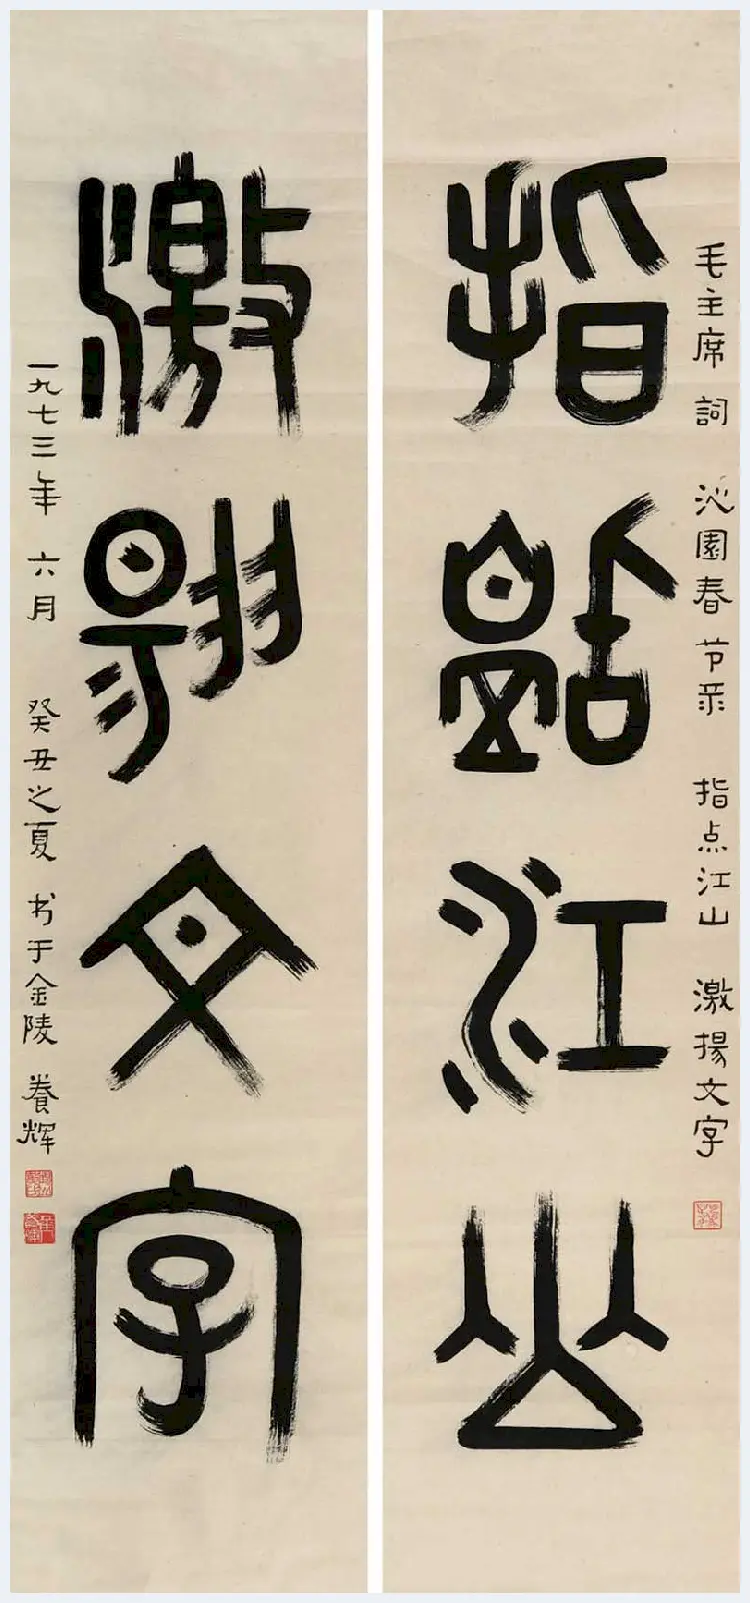 指點江山
毛主席詞 沁園春节录 指点江山 激揚文字
激揚文字
一九七三年六月 癸丑之夏 书于金陵 養辉